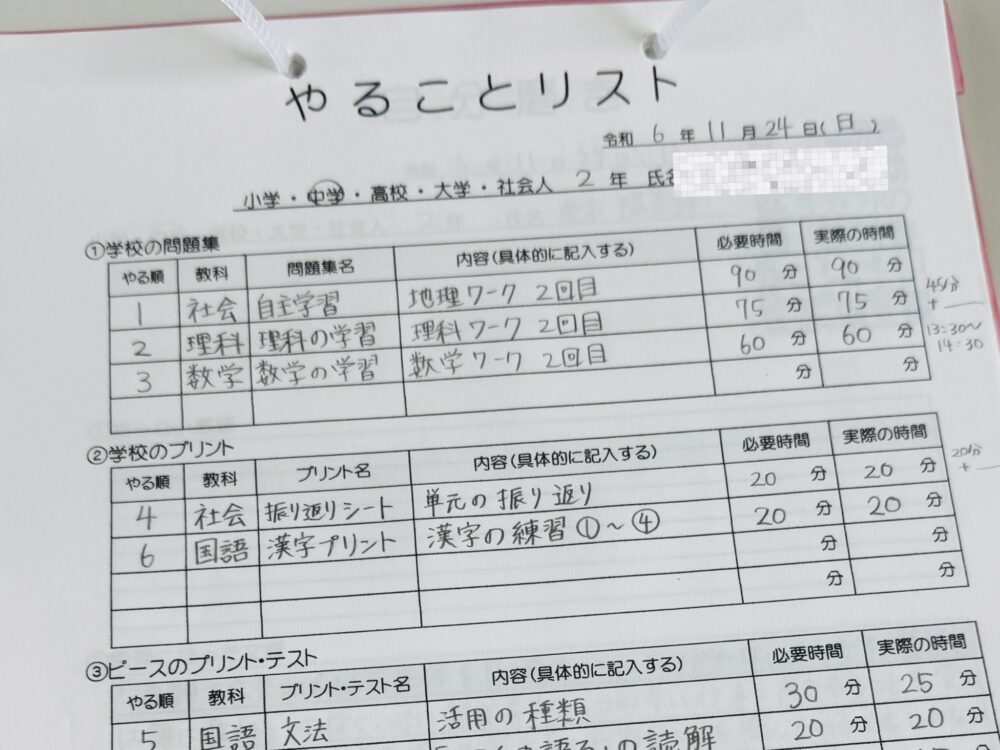 やることリスト
令和 6 年 11 月 24 日(日)
小学・中学・高校・大学・社会人 2 年 氏名
①学校の問題集
やる順 教科 問題集名 内容(具体的に記入する) 必要時間 実際の時間
1 社会 自主学習 地理ワーク 2回目 90 分 90 分
2 理科 理科の学習 理科ワーク 2回目 75 分 75 分
3 数学 数学の学習 数学ワーク 2回目 60 分 60 分
分 分
45分
+
13:30〜
14:30
②学校のプリント
やる順 教科 プリント名 内容(具体的に記入する) 必要時間 実際の時間
4 社会 振り返りシート 単元の振り返り 20 分 20 分
6 国語 漢字プリント 漢字の練習①〜④ 20 分 20 分
分 分
分 分
20分
+
③ピースのプリント・テスト
やる順 教科 プリント・テスト名 内容(具体的に記入する) 必要時間 実際の時間
5 国語 文法 活用の種類 30 分 25 分
の読解 20 分 20 分